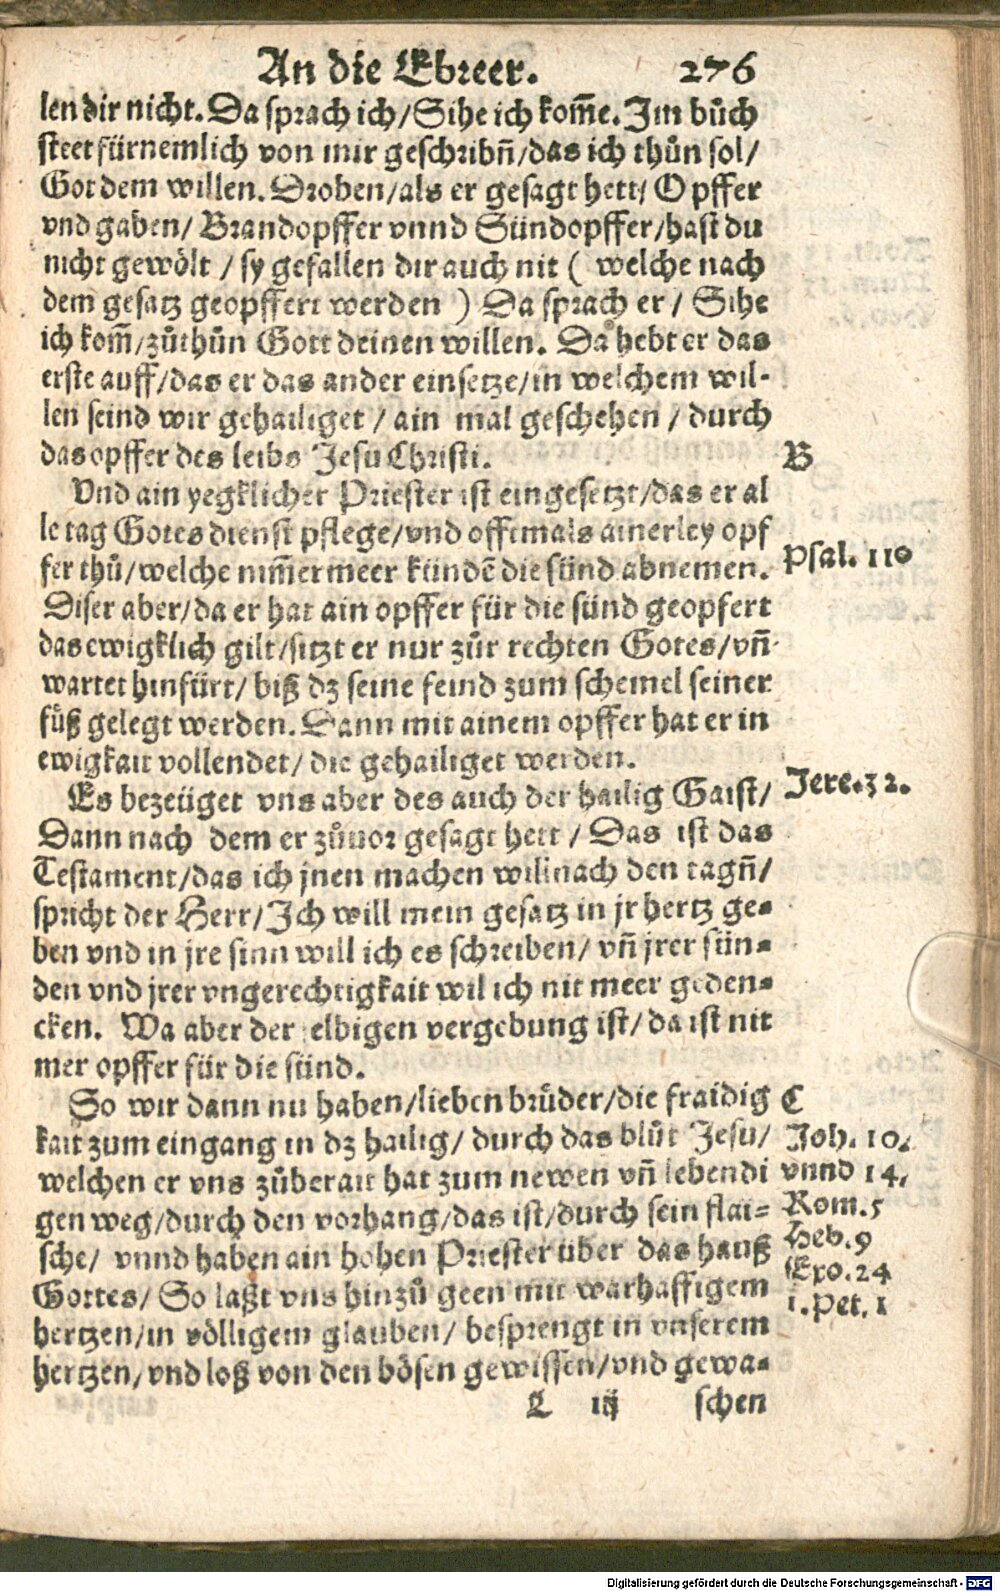 An die Ebreer. 276
len dir nicht. Da sprach ich/Sihe ich kom̄e. Jm bůch
steet fürnemlich von mir geschribn̄/das ich thůn sol/
Got dem willen. Droben/als er gesagt hett/ Opffer
vnd gaben/ Brandopffer vnnd Sündopffer/hast du
nicht gewölt / sy gefallen dir auch nit ( welche nach
dem gesatz geopffert werden ) Da sprach er / Sihe
ich kom̄/zůthůn Gott deinen willen. Da hebt er das
erste auff/das er das ander einsetze/in welchem wil-
len seind wir gehailiget / ain mal geschehen / durch
das opffer des leibs Jesu Christi.
B
Vnd ain yegklicher Priester ist eingesetzt/das er al
le tag Gotes dienst pflege/vnd offtmals ainerley opf
fer thů/welche nim̄ermeer kündē die sünd abnemen.
Psal. 110
Diser aber/da er hat ain opffer für die sünd geopfert
das ewigklich gilt/sitzt er nur zůr rechten Gotes/vn̄
wartet hinfürt/ biß dz seine feind zum schemel seiner
füß gelegt werden. Dann mit ainem opffer hat er in
ewigkait vollendet/ die gehailiget werden.
Es bezeüget vns aber des auch der hailig Gaist/
Jere.32.
Dann nach dem er zůuor gesagt hett / Das ist das
Testament/das ich jnen machen will nach den tagn̄/
spricht der Herr/Jch will mein gesatz in jr hertz ge-
ben vnd in jre sinn will ich es schreiben/ vn̄ jrer sün-
den vnd jrer vngerechtigkait wil ich nit meer geden-
cken. Wa aber der elbigen vergebung ist/ da ist nit
mer opffer für die sünd.
So wir dann nu haben/lieben brüder/die fraidig
C
kait zum eingang in dz hailig/ durch das blůt Jesu/
Joh. 10.
welchen er vns zůberait hat zum newen vn̄ lebendi
vnnd 14,
gen weg/durch den vorhang/das ist/durch sein flai-
Rom.5
sche/ vnnd haben ain hohen Priester über das hauß
Heb.9
Gottes/ So laßt vns hinzů geen mit warhafftigem
Exo.24
hertzen/in völligem glauben/ besprengt in vnserem
1.Pet.1
hertzen/vnd loß von den bösen gewissen/vnd gewa-
L iij schen
Digitalisierung gefördert durch die Deutsche Forschungsgemeinschaft - DFG